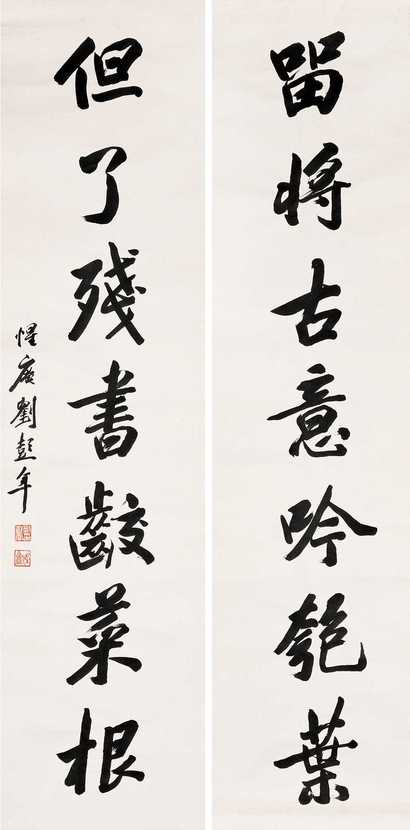 留將古意吟匏葉
但了殘書齩菜根
惺 劉彭年